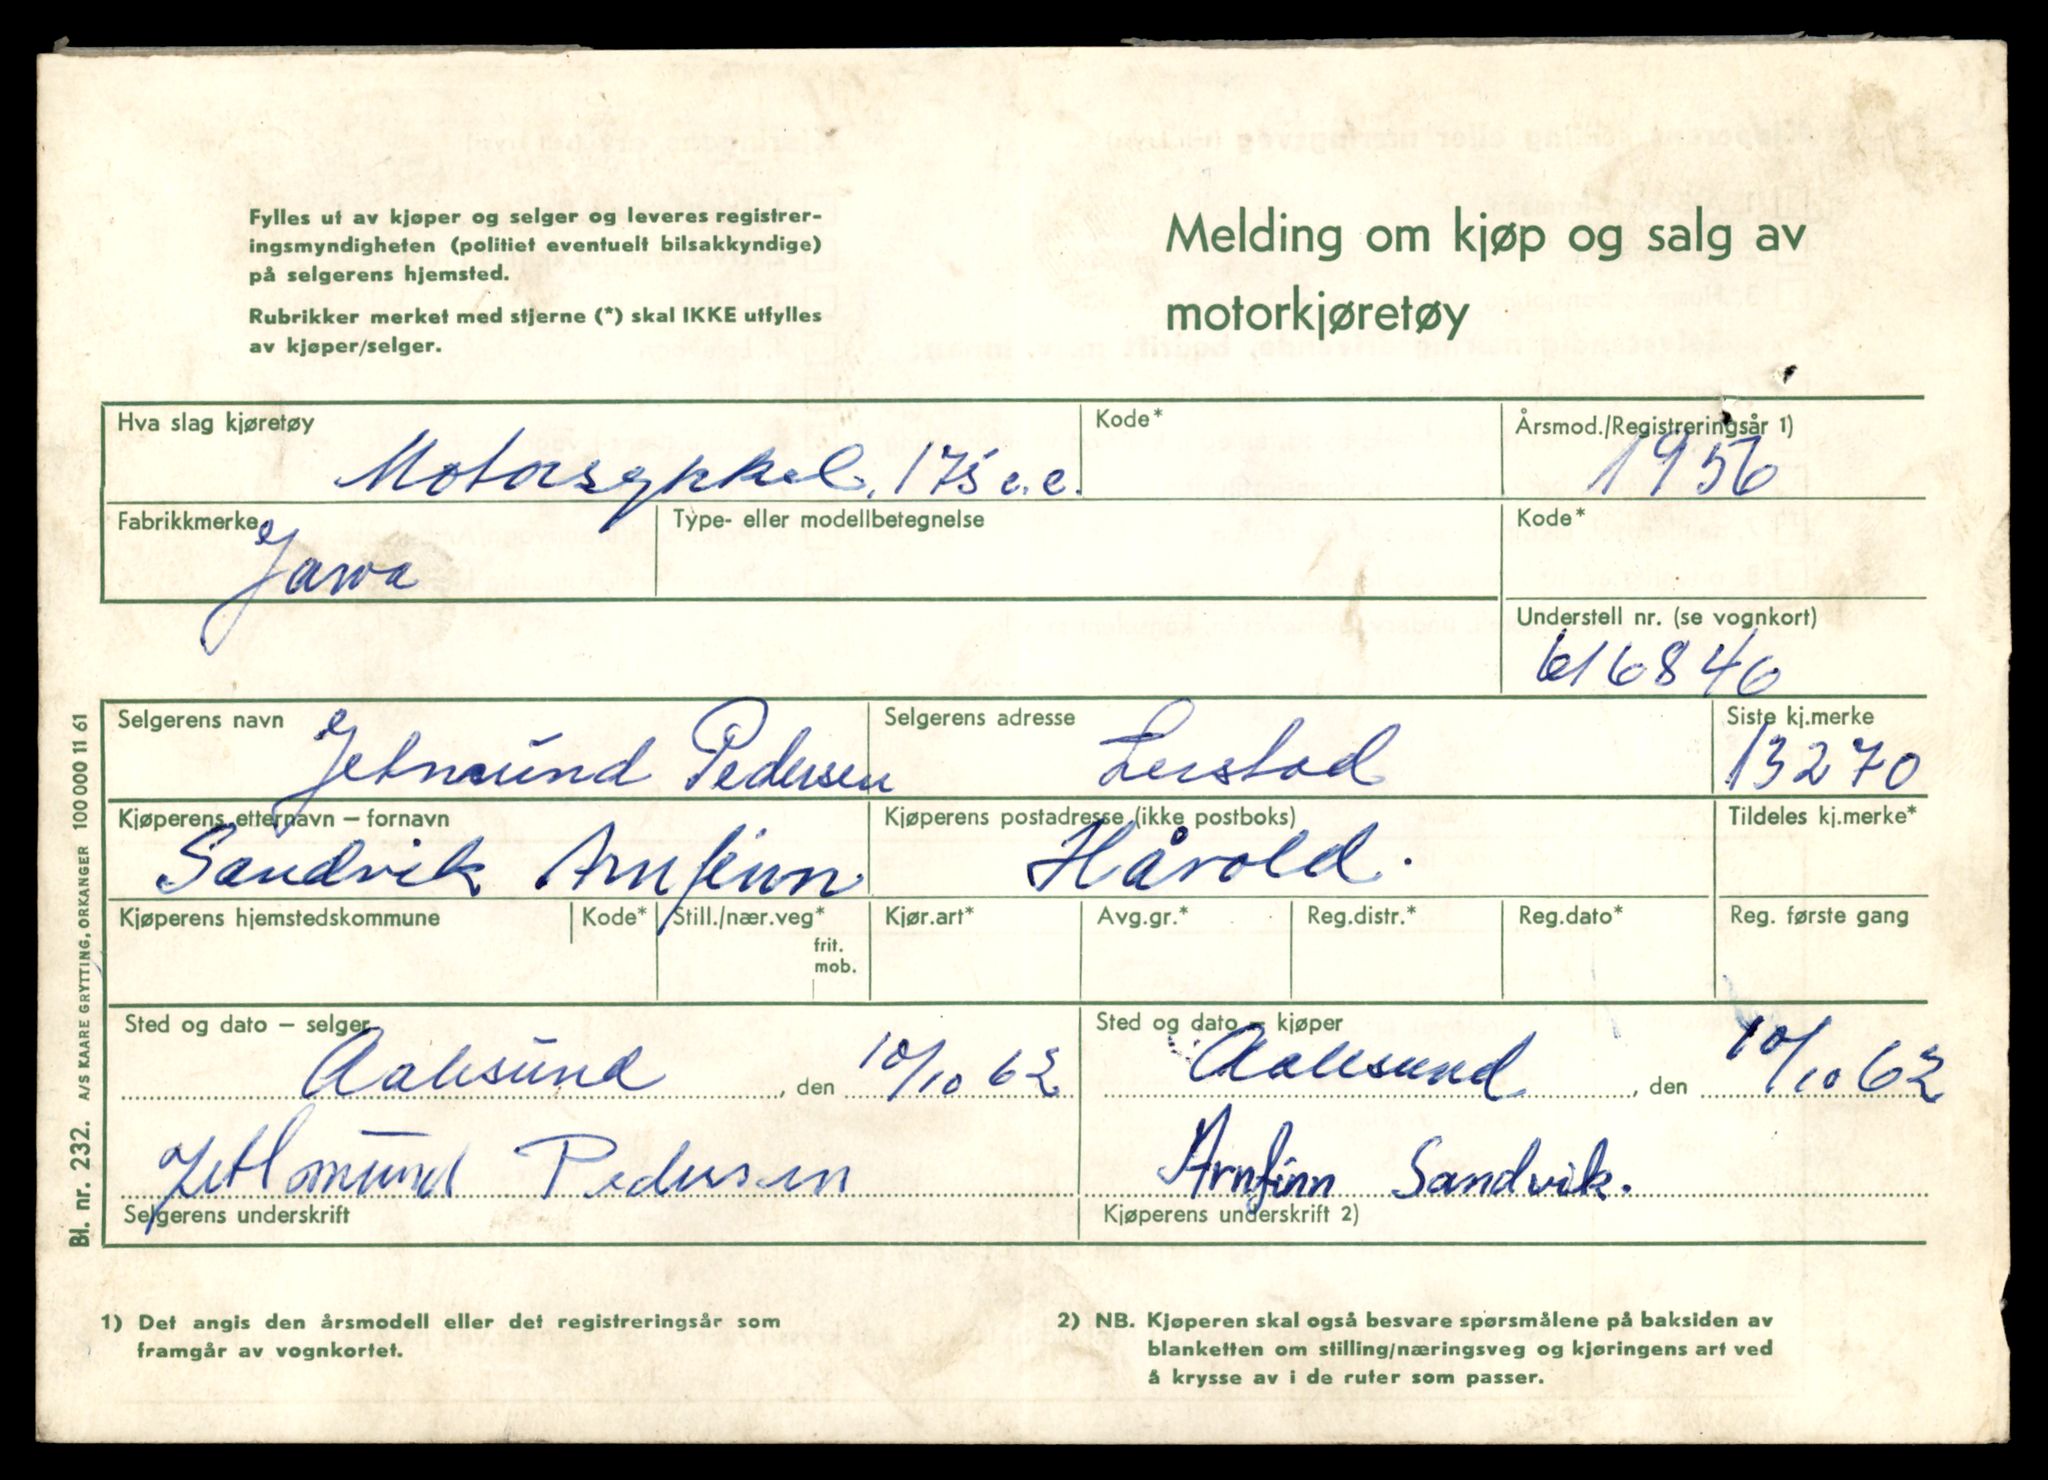 Fylles ut av kjøper og selger og leveres registrer-
ingsmyndigheten (politiet eventuelt bilsakkyndige)
på selgerens hjemsted.
Rubrikker merket med stjerne (*) skal IKKE utfylles
av kjøper/selger.
Melding om kjøp og salg av
motorkjøretøy
Hva slag kjøretøy
Motorsykkel. 175 c.c.
Kode*
Årsmod./Registreringsår 1)
1956
Fabrikkmerke
Jawa
Type- eller modellbetegnelse
Kode*
Understell nr. (se vognkort)
616846
Selgerens navn
Jetmund Pedersen
Selgerens adresse
Lerstad
Siste kj.merke
13270
Kjøperens etternavn – fornavn
Sandvik Arnfinn
Kjøperens postadresse (ikke postboks)
Håvold.
Tildeles kj.merke*
Kjøperens hjemstedskommune
Kode*
Still./nær.veg*
frit.
mob.
Kjør.art*
Avg.gr.*
Reg.distr.*
Reg.dato*
Reg. første gang
Sted og dato – selger
Aalesund, den 10/10 62
Sted og dato – kjøper
Aalesund, den 10/10 62
Pedersen
Selgerens underskrift
Arnfinn Sandvik.
Kjøperens underskrift 2)
Bl. nr. 232. A/S KAARE GRYTTING, ORKANGER 100 000 11 61
1) Det angis den årsmodell eller det registreringsår som
framgår av vognkortet.
2) NB. Kjøperen skal også besvare spørsmålene på baksiden av
blanketten om stilling/næringsveg og kjøringens art ved
å krysse av i de ruter som passer.